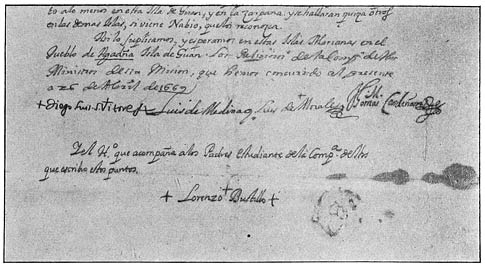 to alo menos en esta Isla de Guan, y en la Zarpana. y se hallaran quiça otros
en las demas Islas, si viene Nabio, que los recoxa.
Assi lo suplicamos, y esperamos en estas Islas Marianas en el
Pueblo de Agadña Isla de Guan. Los Religiosos de la Comp.ª de
Ministros de esta Mission, que hemos concurrido al presente
a 26 de Abril de 1669
+ Diego Luis S. Vitores + Luis de Medina Luis de Morales Thomas Cardeñoso
Y el H.º que acompaña a los Padres Estudiante de la Comp.ª de
que escribo estos puntos.
+ Lorenzo Bustillo +